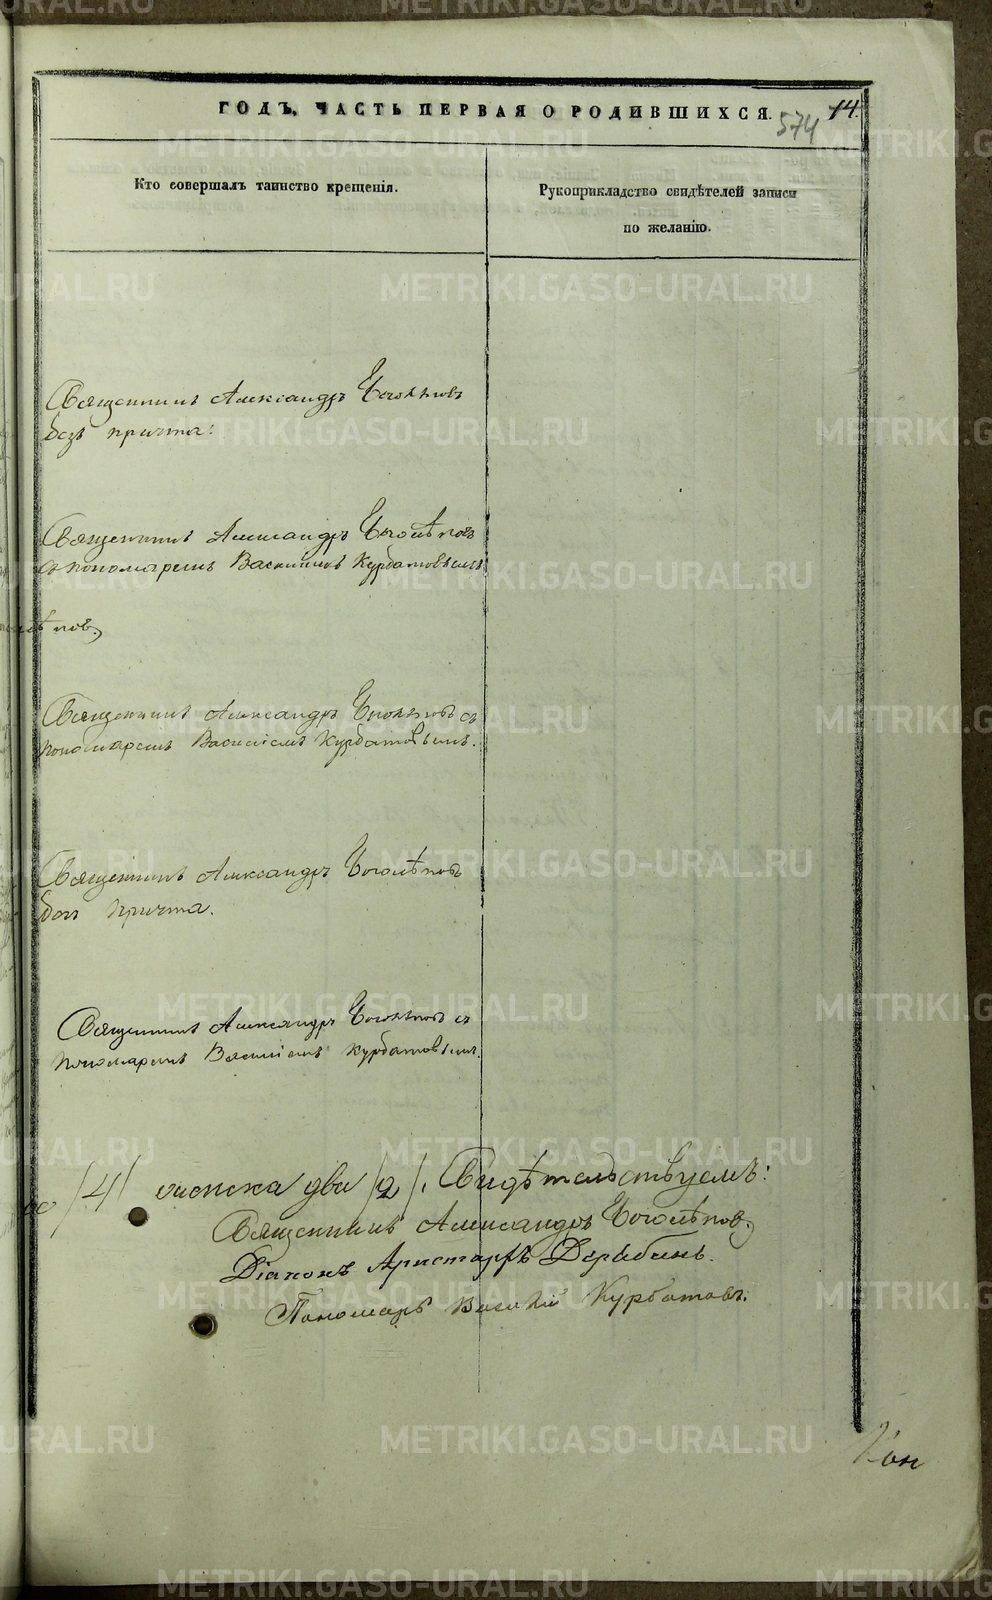 ГОДЪ, ЧАСТЬ ПЕРВАЯ О РОДИВШИХСЯ.
574 14.
Кто совершалъ таинство крещенія.
Рукоприкладство свидѣтелей записи
по желанію.
Священникъ Александръ Боголѣповъ
безъ причта.
Священникъ Александръ Боголѣповъ
съ пономаремъ Василіемъ Курбатовымъ
Священникъ Александръ Боголѣповъ съ
пономаремъ Василіемъ Курбатовымъ.
Священникъ Александръ Боголѣповъ
безъ причта.
Священникъ Александръ Боголѣповъ съ
пономаремъ Василіемъ Курбатовымъ.
/4/ женска два /2/. Свидѣтельствуемъ:
Священникъ Александръ Боголѣповъ
Діаконъ Аристархъ Дерябинъ.
Пономарь Василій Курбатовъ.
METRIKI.GASO-URAL.RU